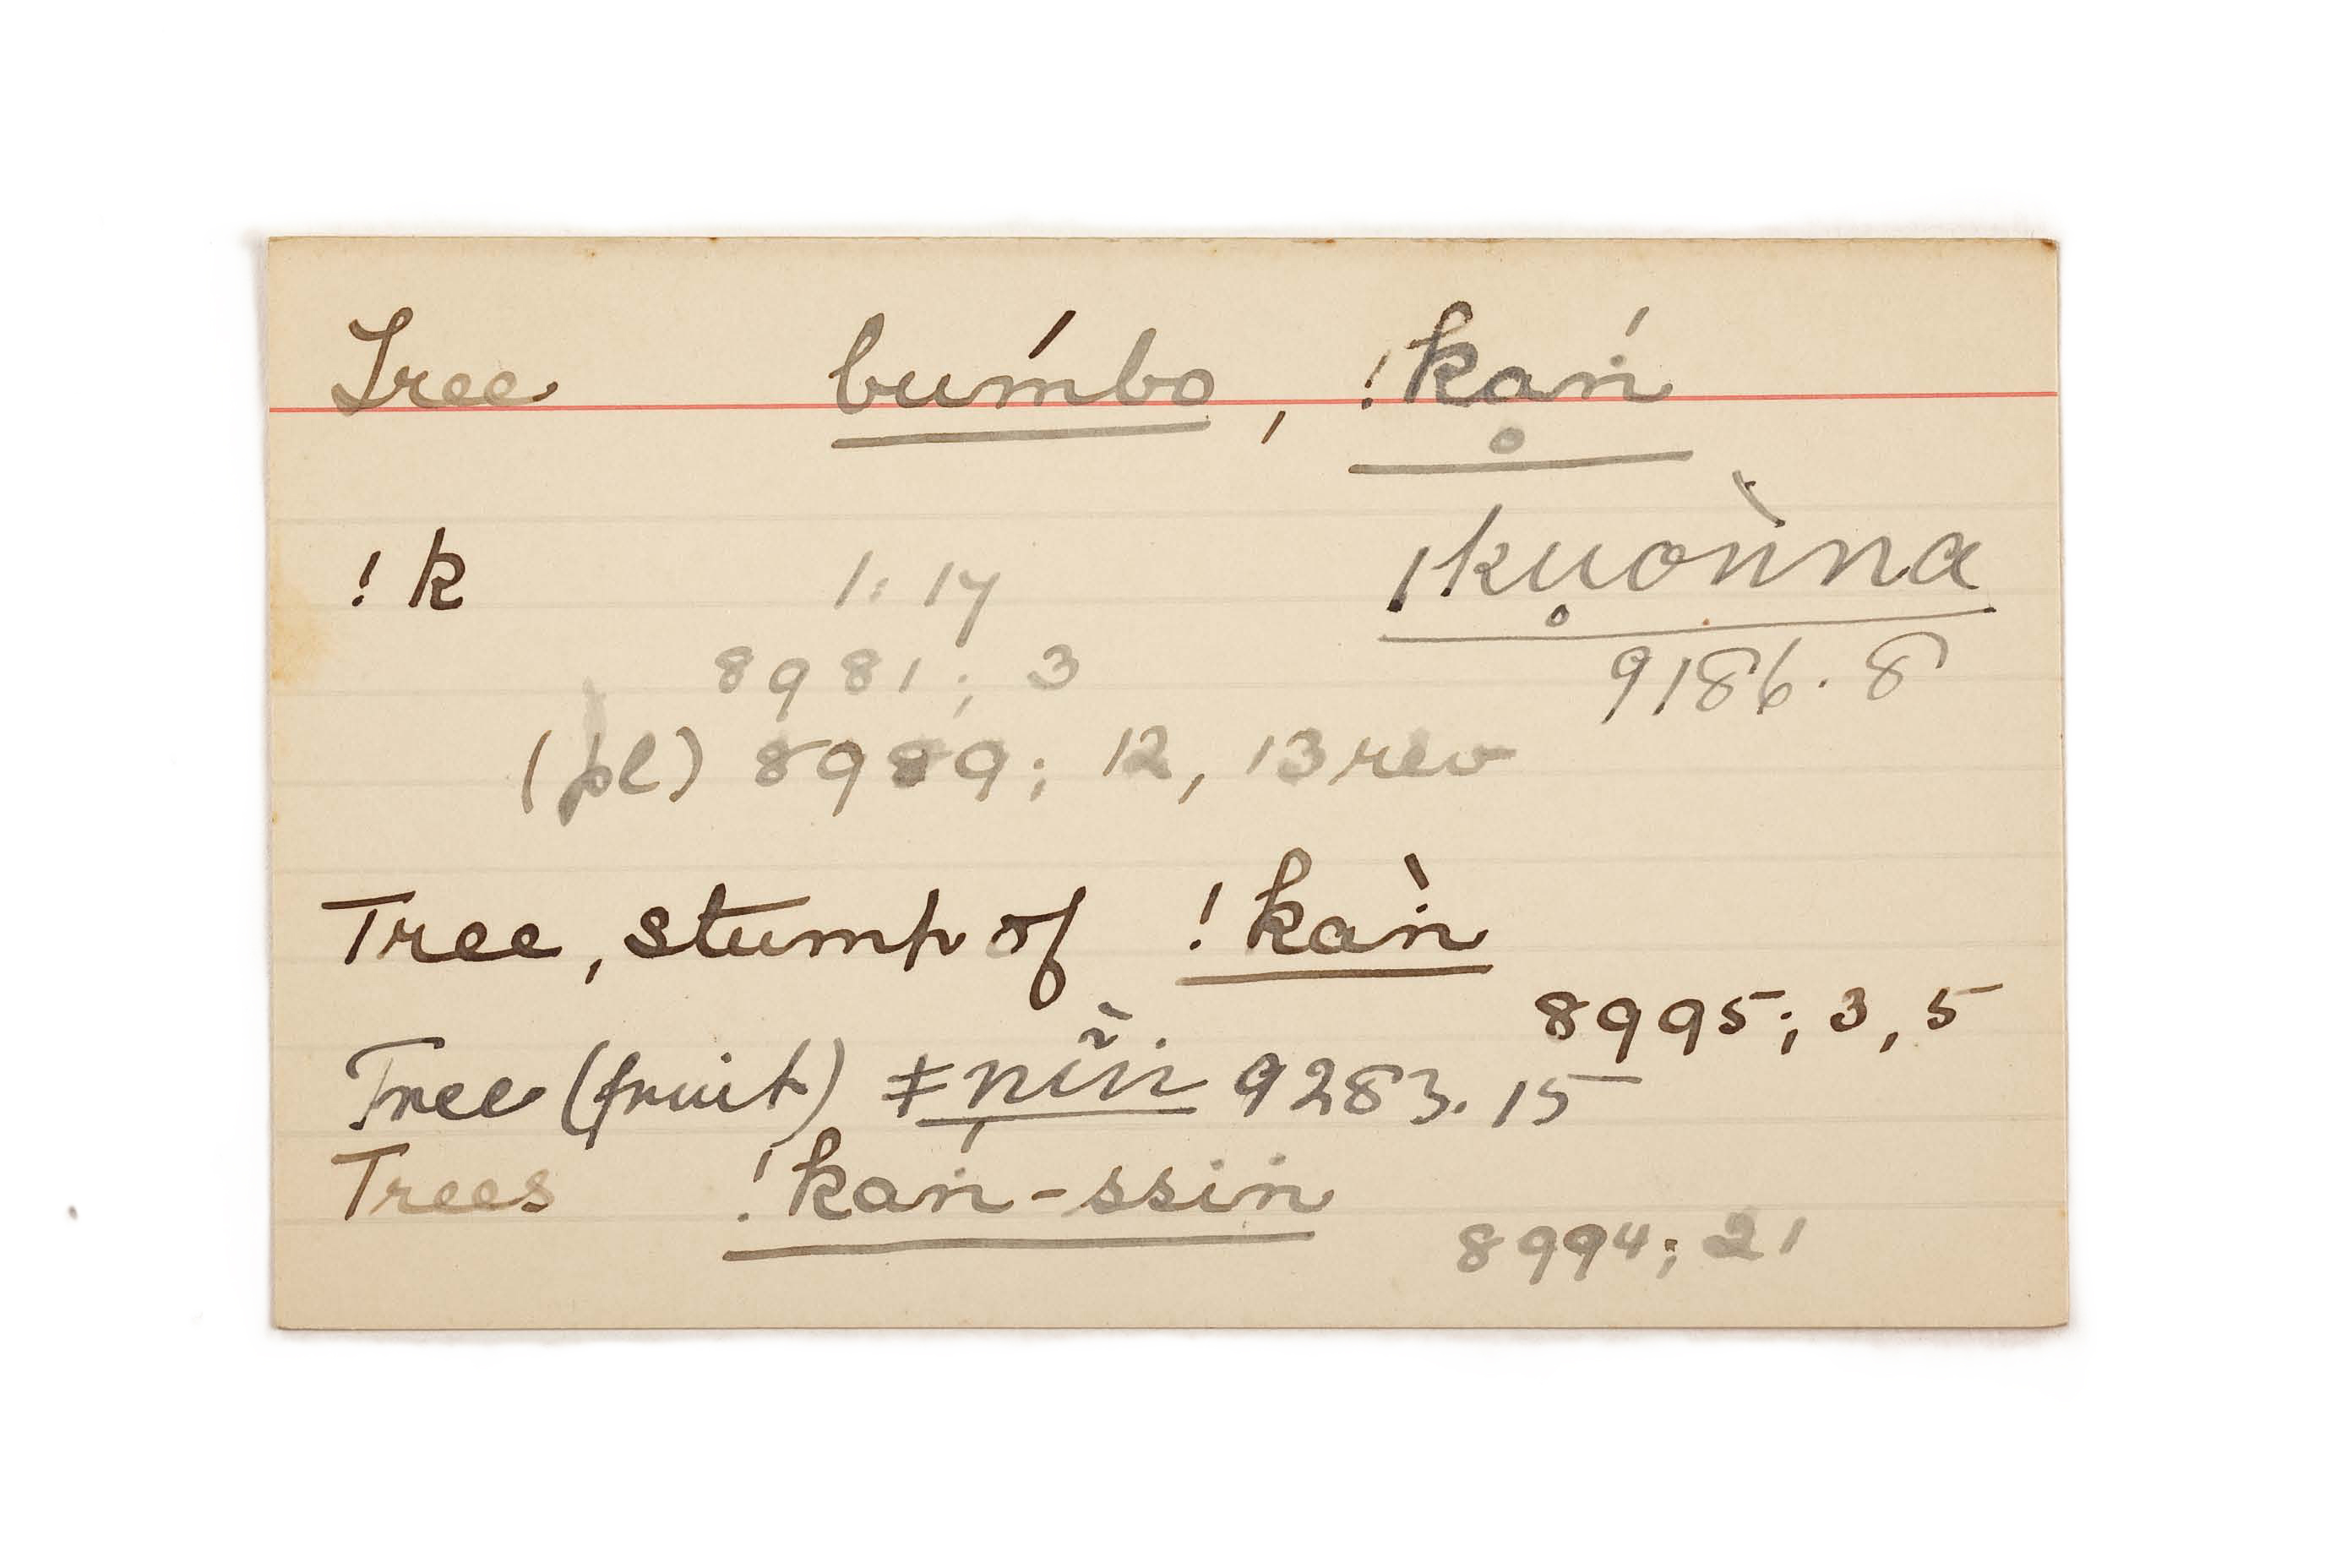 Tree bum̍bo, !kḁṅ́
!k 1; 17 ǀkṷoǹna
8981; 3 9186. 8
(pl) 8989; 12, 13 rev
Tree, stump of !kaṅ̀
8995; 3, 5
Tree (fruit) 9283. 15
Trees !kaṅ-ssiṅ
8994; 21